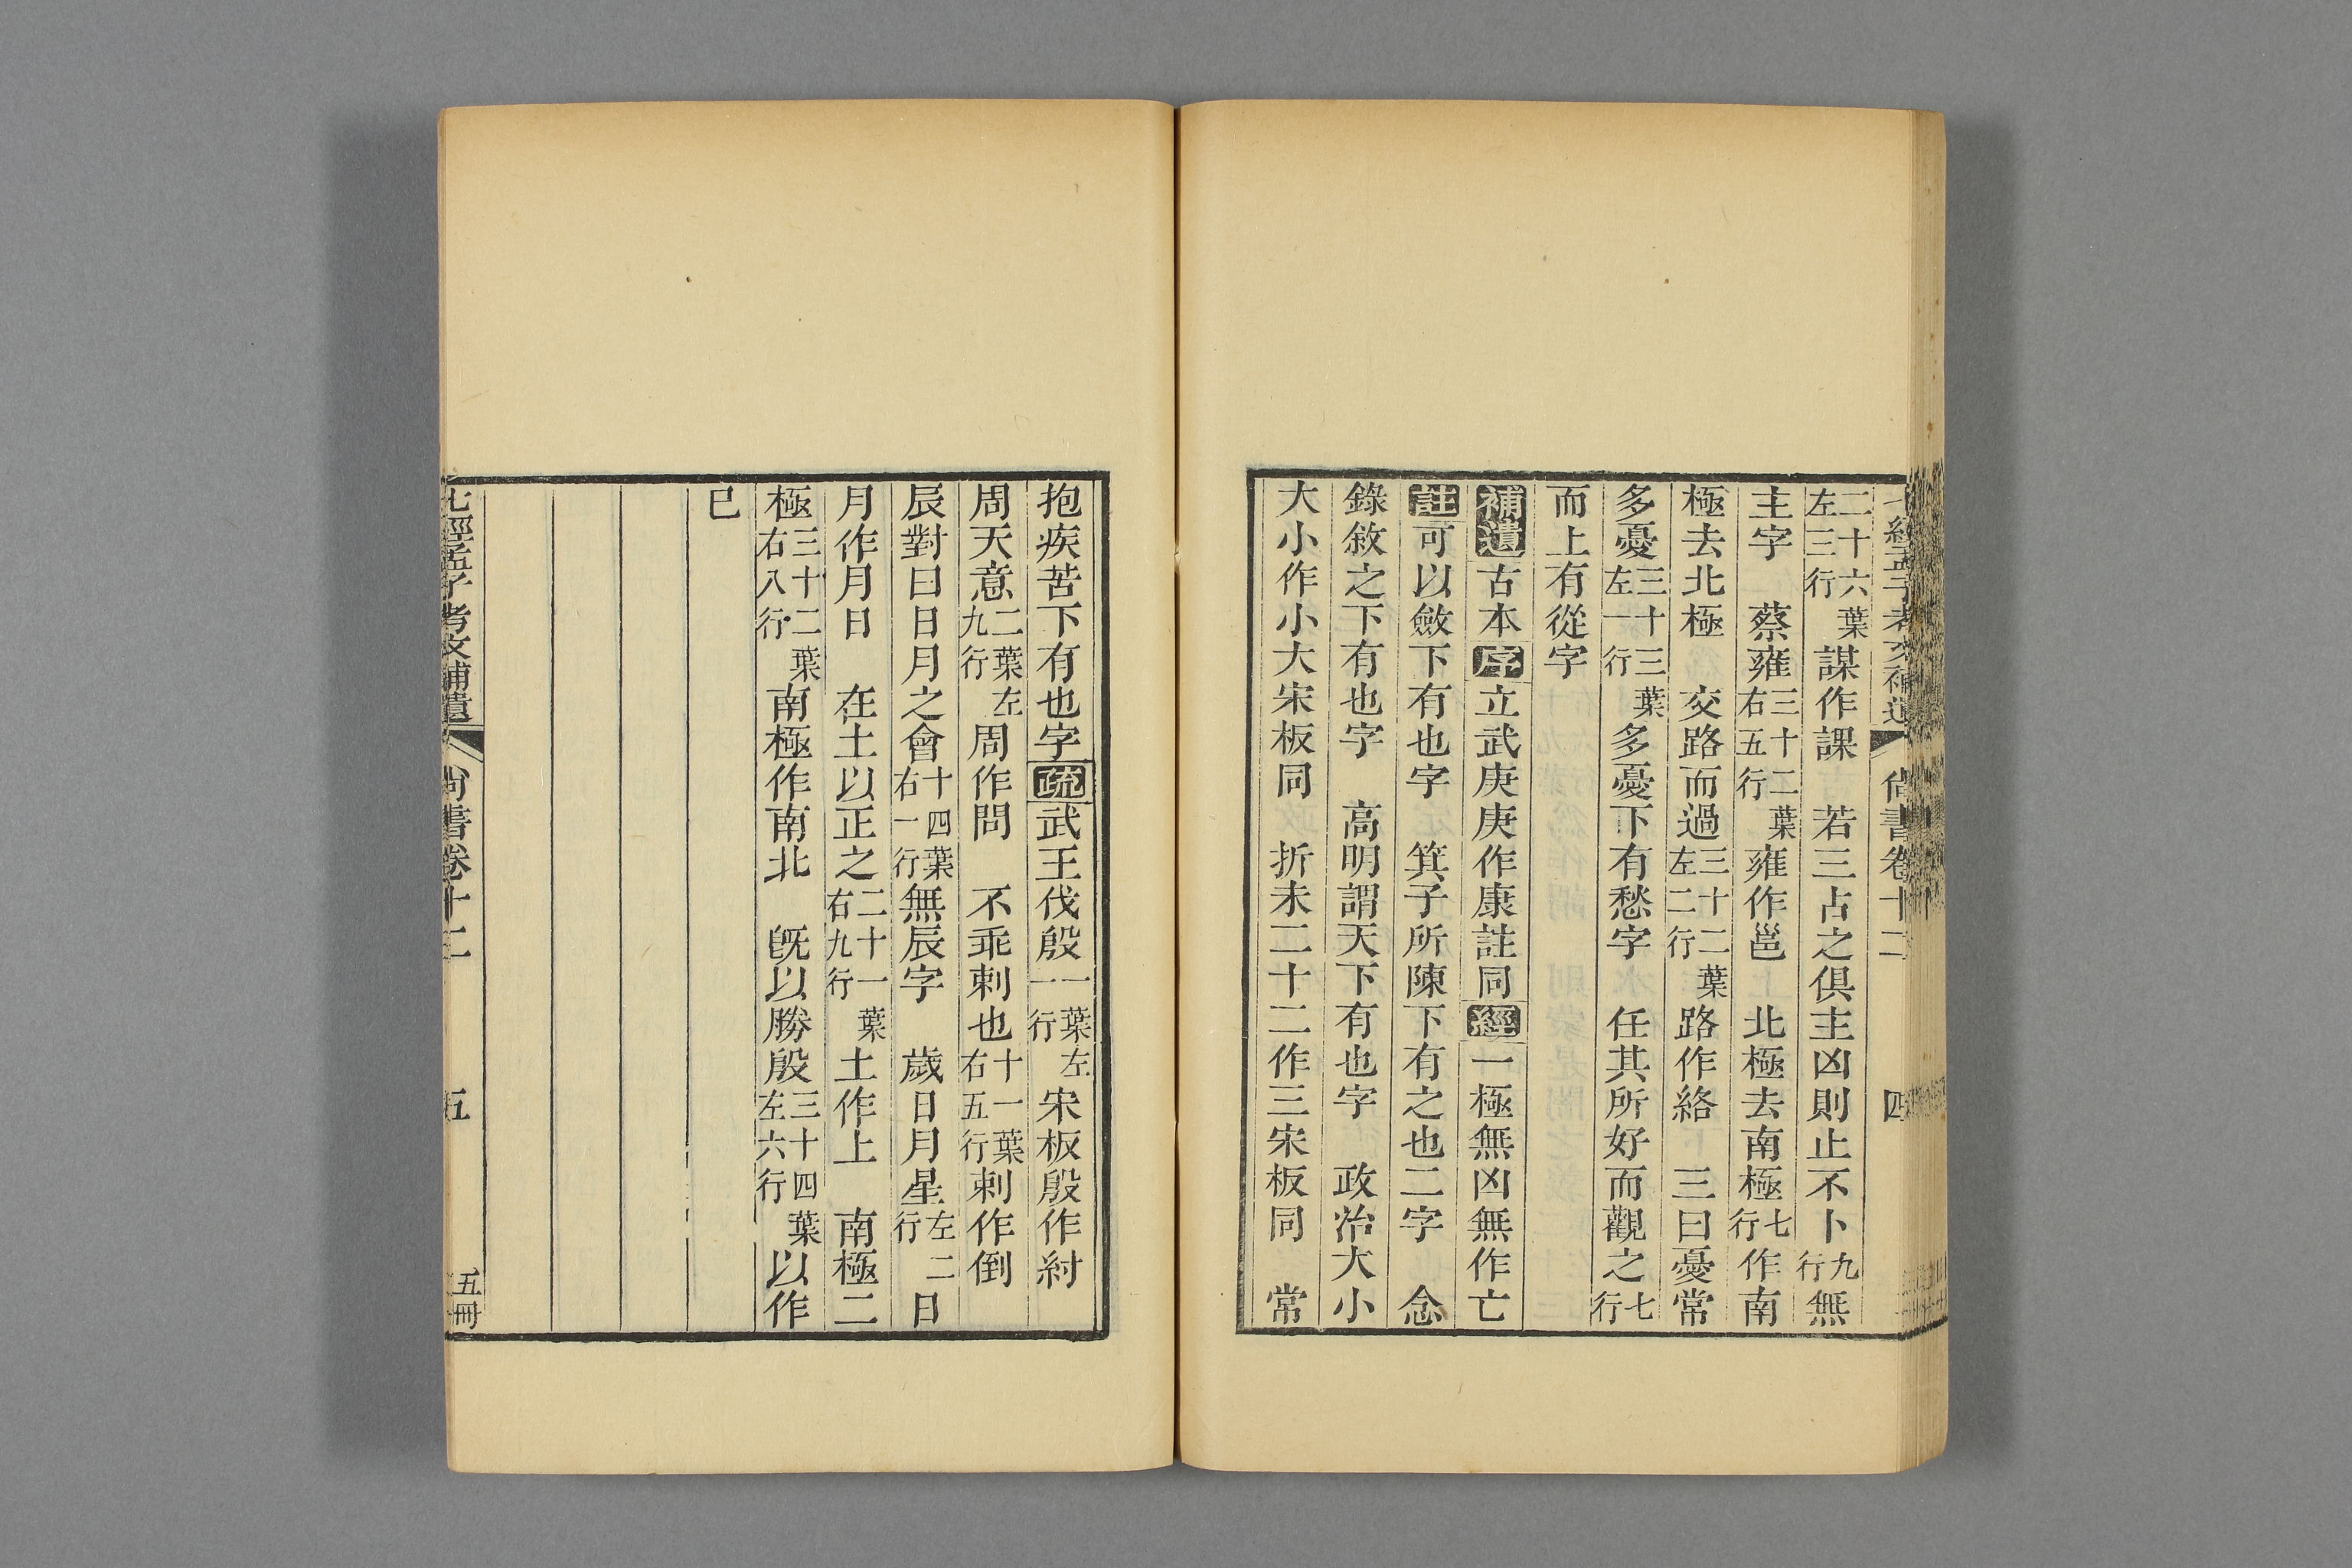 七經孟子考文補遺 尚書卷十二 四
二十六葉左三行謀作課 若三占之俱主凶則止不卜九行無
主字 蔡雍三十二葉右五行雍作邕 北極去南極七行作南
極去北極 交路而過三十二葉左二行路作絡 三曰憂常
多憂三十三葉左一行多憂下有愁字 任其所好而觀之七行
而上有從字
補遺古本序立武庚庚作康註同經一極無凶無作亡
註可以斂下有也字 箕子所陳下有之也二字 念
錄敘之下有也字 高明謂天下有也字 政治大小
大小作小大宋板同 折未二十二作三宋板同 常
抱疾苦下有也字疏武王伐殷一葉左一行宋板殷作紂
周天意二葉左九行周作問 不乖剌也十一葉右五行剌作倒
辰對曰日月之會十四葉右一行無辰字 歲日月星左二行日
月作月日 在土以正之二十一葉右九行土作上 南極二
極三十二葉右八行南極作南北 旣以勝殷三十四葉左六行以作
已
七經孟子考文補遺 尚書卷十二 五 五冊